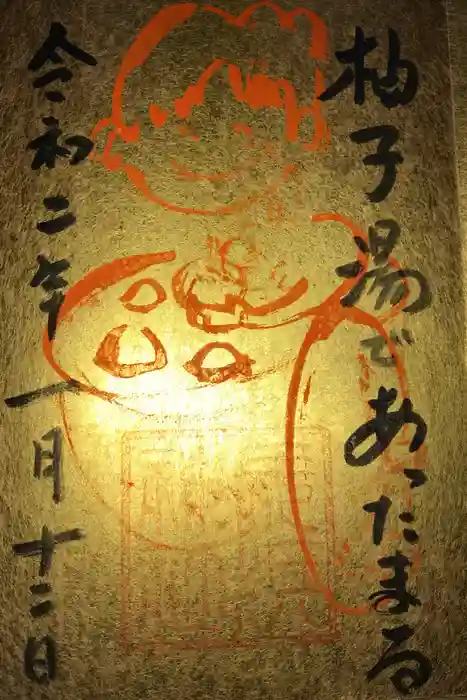 柚子湯であったまる
令和二年一月十二日